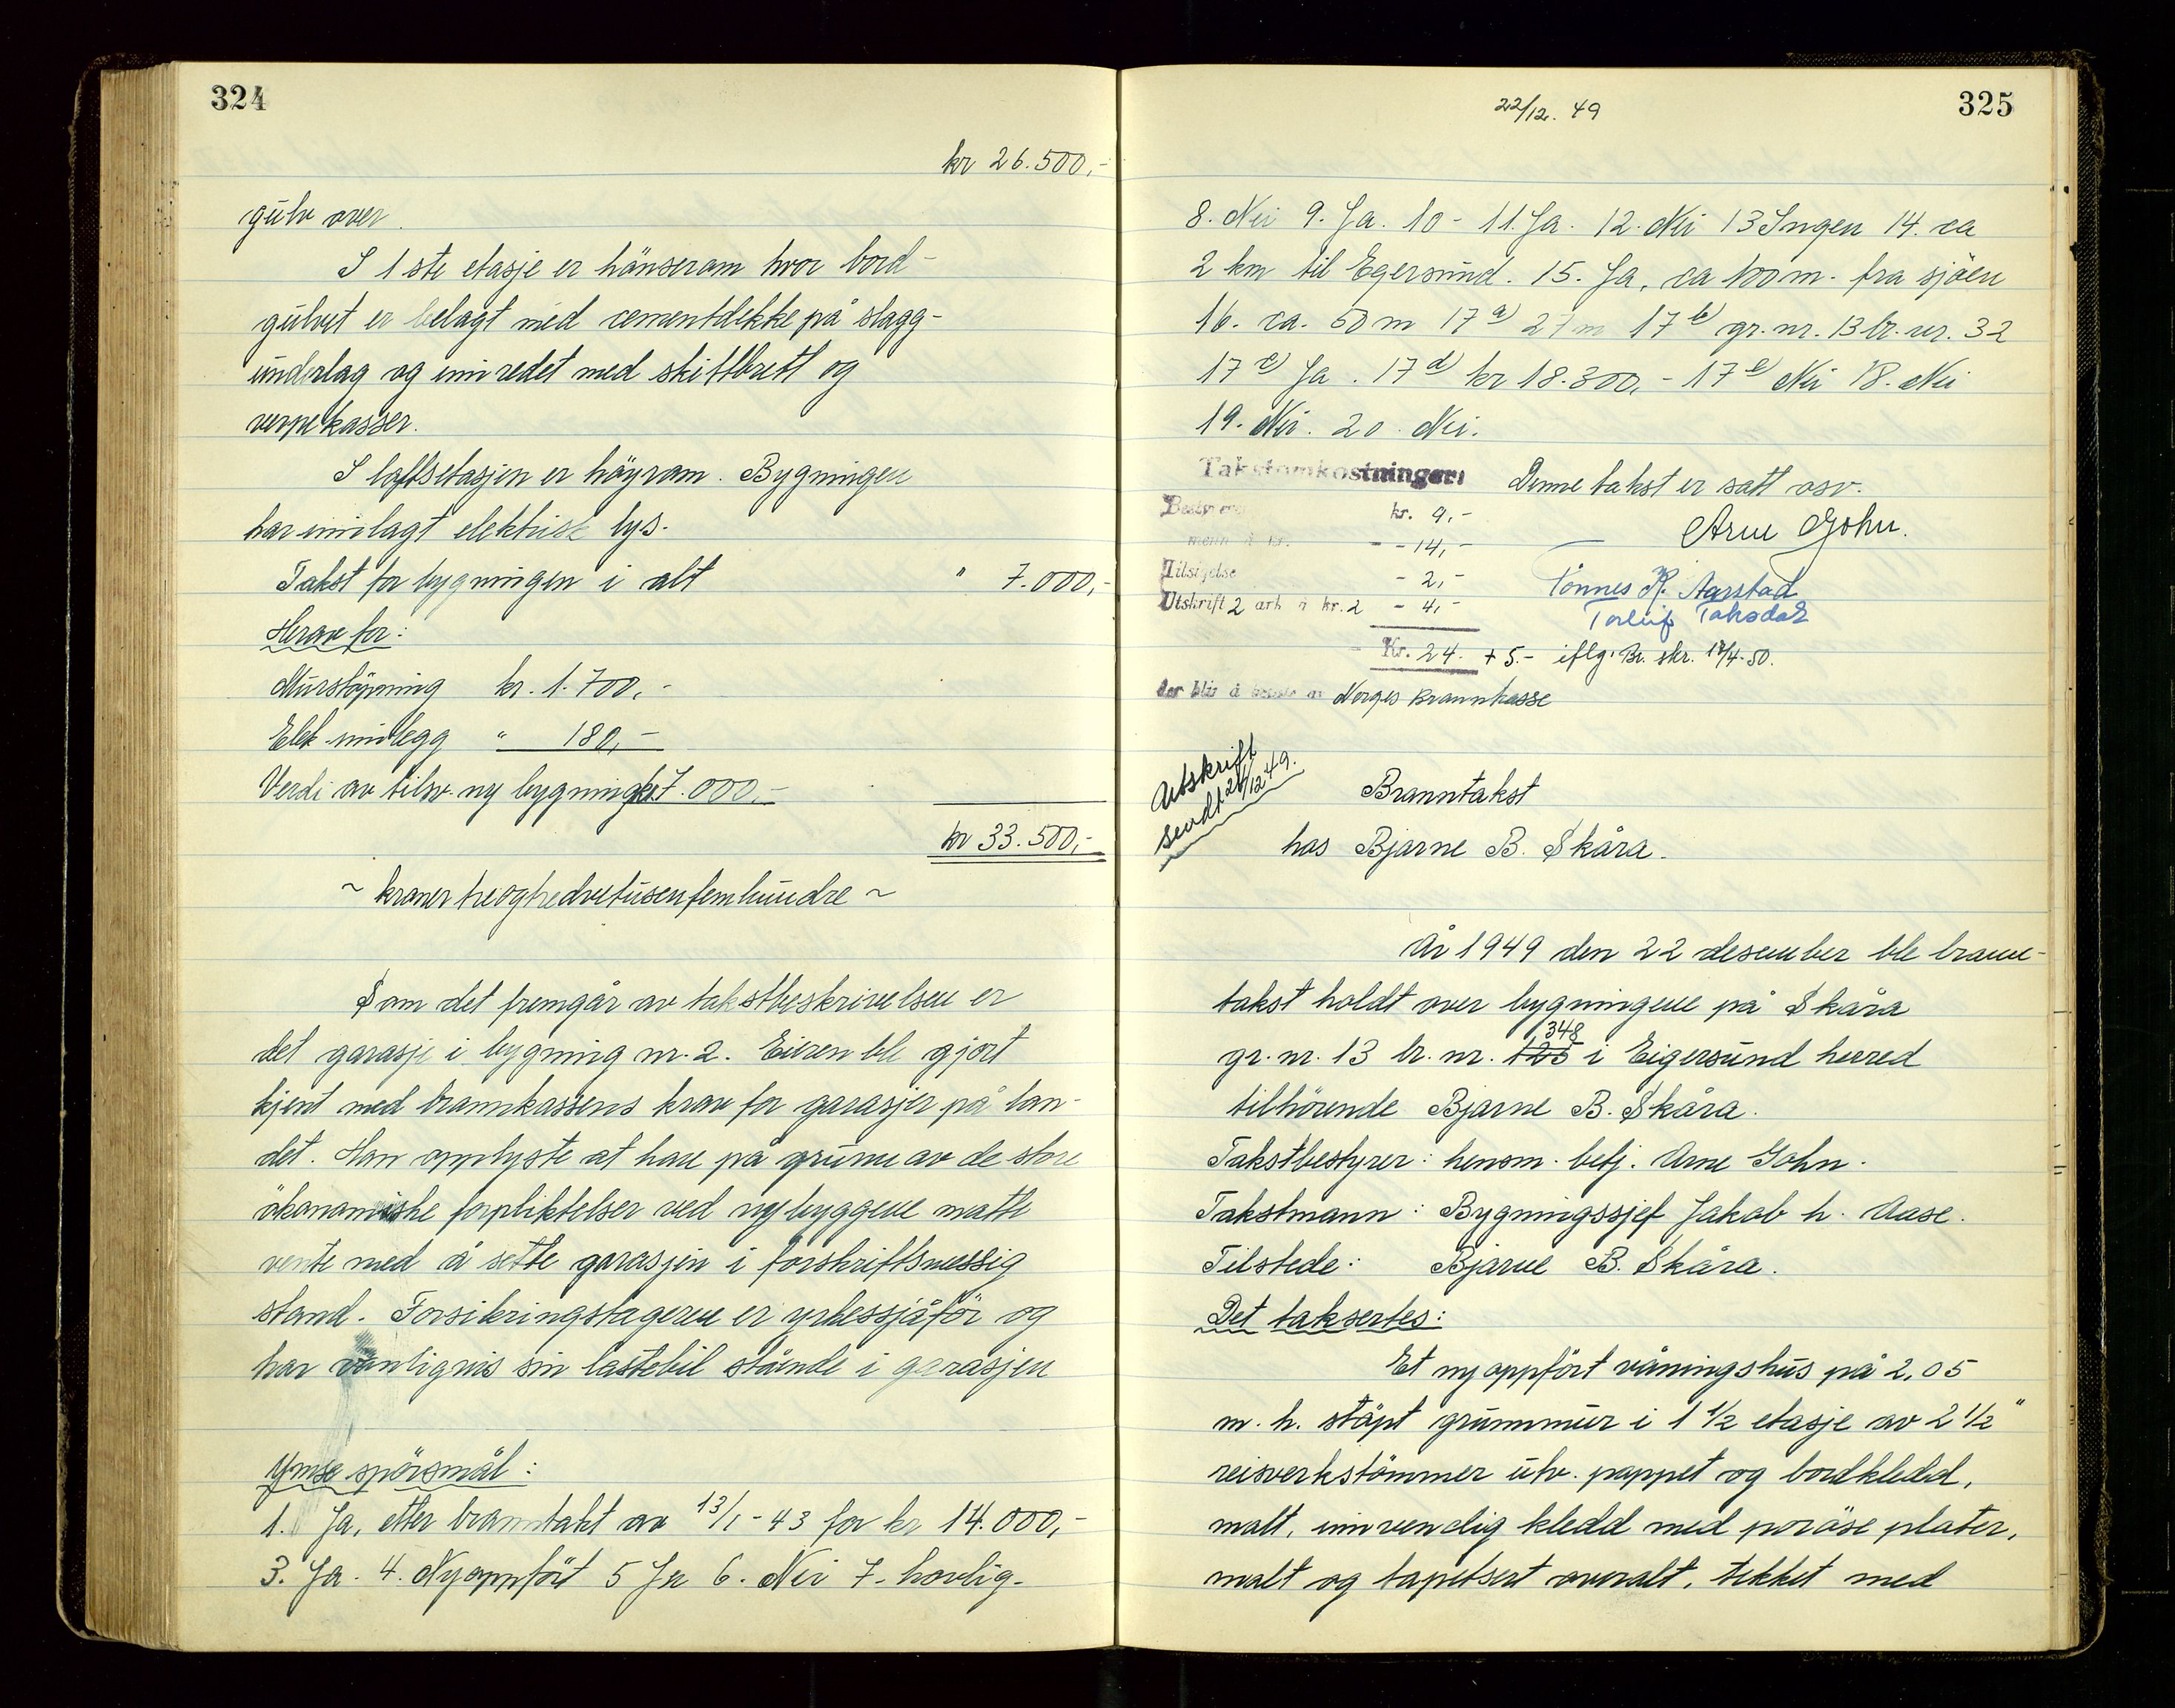 324
kr 26.500,-
gulv over.
I 1ste etasje er hönserom hvor bord-
gulvet er belagt med cementdekke på slagg-
underlag og innredet med skittbrett og
verpekasser.
I loftsetasjen er höyrom. Bygningen
har innlagt elektrisk lys.
Takst for bygningen i alt " 7.000,-
Herav for:
Murstöpning kr. 1.700,-
Elek. innlegg " 180,-
Verdi av tilsv. ny bygning kr 7.000,-
kr 33.500,-
~ kroner treogtredvetusenfemhundre ~
Som det fremgår av takstbeskrivelsen er
det garasje i bygning nr. 2. Eieren ble gjort
kjent med brannkassens krav for garasjer på lan-
det. Han opplyste at han på grunn av de store
ökonomiske forpliktelser ved nybyggene måtte
vente med å sette garasjen i forskriftsmessig
stand. Forsikringstageren er yrkessjåför og
har vanligvis sin lastebil stående i garasjen
Ymse spörsmål:
1. Ja, etter branntakt av 13/1-43 for kr 14.000,-
3. Ja. 4. Nyoppfört 5 Ja 6. Nei 7. hovlig-
22/12. 49
325
8. Nei 9. Ja. 10 - 11. Ja. 12. Nei 13 Ingen 14. ca
2 km til Egersund. 15. Ja, ca 100 m. fra sjöen
16. ca. 50 m 17 a) 27 m 17 b) gr. nr. 13 br. nr. 32
17 c) Ja. 17 d) kr 18.300,- 17 e) Nei 18. Nei
19. Nei. 20. Nei.
Takstomkostninger:
Denne takst er satt osv.
kr. 9,-
Arne Gohn.
menn à kr. - - 14,-
Tilsigelse - 2,-
Tönnes K. Aarstad
Utskrift 2 ark à kr. 2 - 4,-
Torleif Taksdal
Kr. 24. + 5.- iflg. Br. skr. 17/4-50.
der blir å betale av Norges Brannkasse
Avskrift
sendt 28/12 49.
Branntakst
hos Bjarne B. Skåra.
År 1949 den 22 desember ble brann-
takst holdt over bygningene på Skåra
348
gr. nr. 13 br. nr. 125 i Eigersund herred
tilhörende Bjarne B. Skåra.
Takstbestyrer: lensm. betj. Arne Gohn.
Takstmann: Bygningssjef Jakob h. Aase.
Tilstede: Bjarne B. Skåra.
Det taksertes:
Et nyoppfört våningshus på 2,05
m. h. stöpt grunnmur i 1 1/2 etasje av 2 1/2"
reisverkstömmer utv. pappet og bordkledd,
malt, innvendig kledd med poröse plater,
malt og tapetsert overalt, tekket med